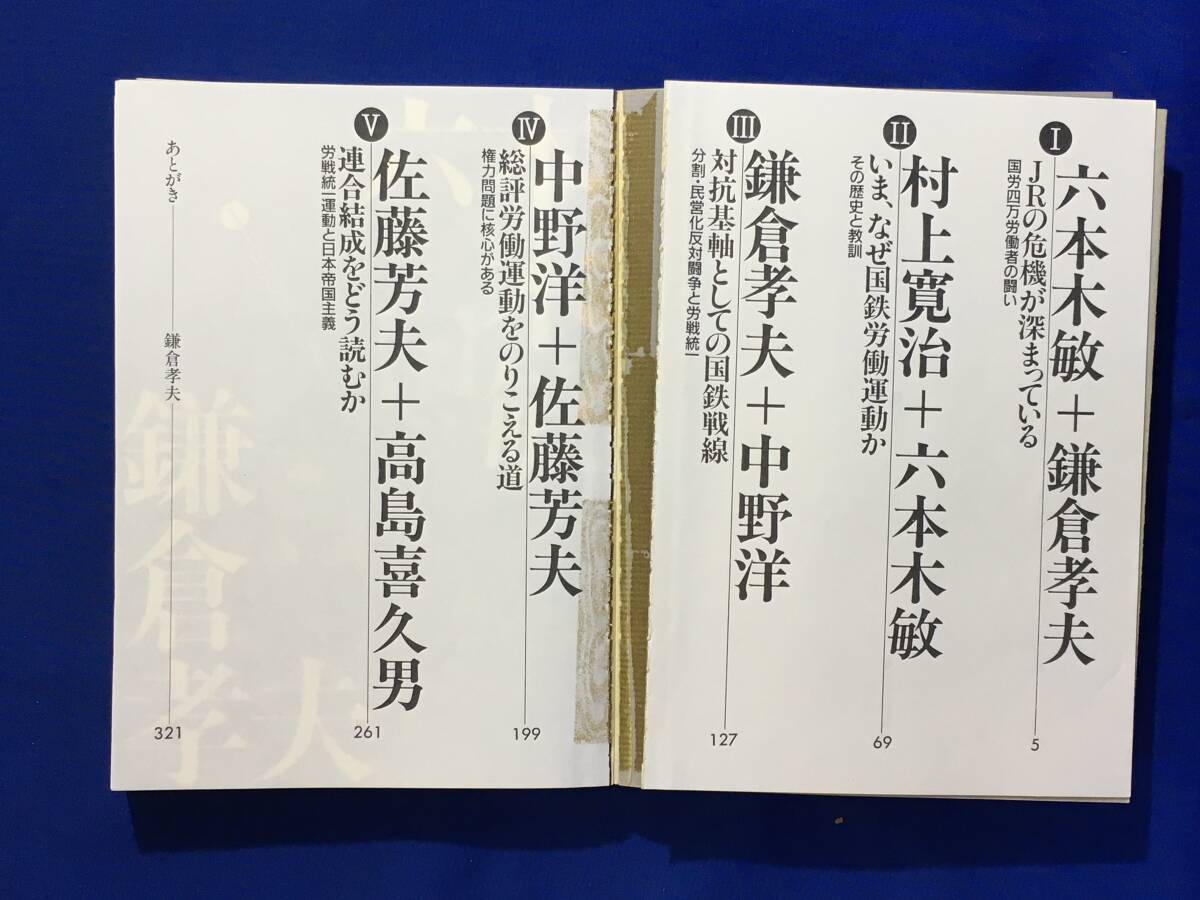 Ⅰ
六本木敏+鎌倉孝夫
JRの危機が深まっている
国労四万労働者の闘い
5
Ⅱ
村上寛治+六本木敏
いま、なぜ国鉄労働運動か
その歴史と教訓
69
Ⅲ
鎌倉孝夫+中野洋
対抗基軸としての国鉄戦線
分割・民営化反対闘争と労戦統一
127
Ⅳ
中野洋+佐藤芳夫
総評労働運動をのりこえる道
権力問題に核心がある
199
Ⅴ
佐藤芳夫+高島喜久男
連合結成をどう読むか
労戦統一運動と日本帝国主義
261
あとがき 鎌倉孝夫
321